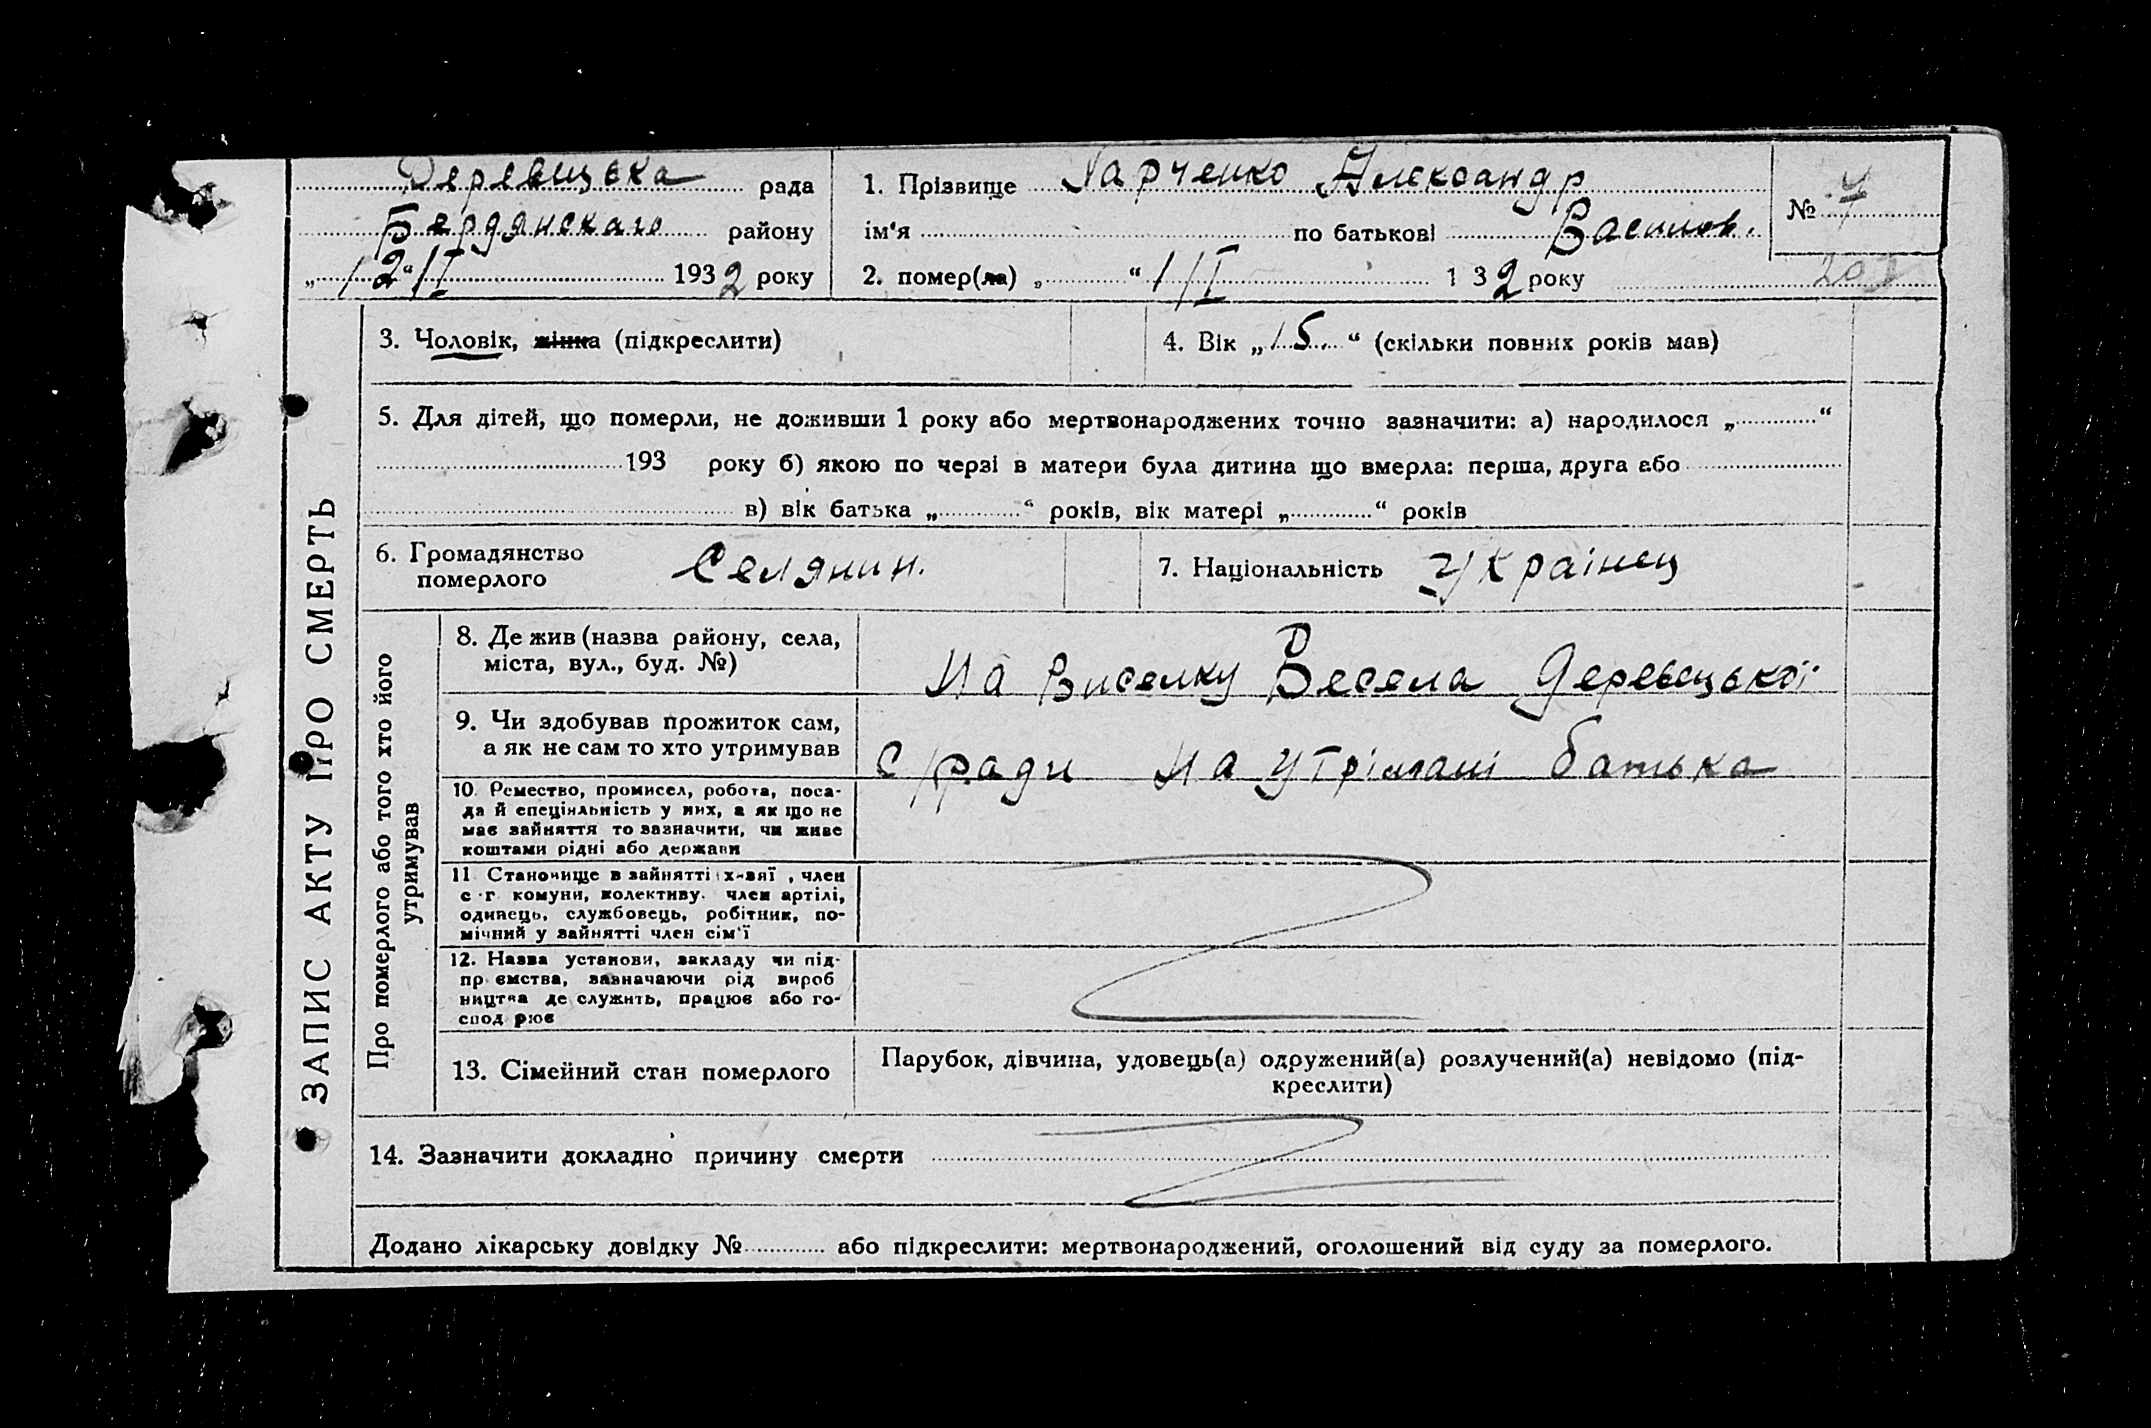 Деревецька рада
Бердянскаго району
„12“/I 1932 року
1. Прізвище Харченко Александр
ім‘я по батькові Васильов.
2. помер(ла) „ “ 1/I 1 32 року
№ 4
ЗАПИС АКТУ ПРО СМЕРТЬ
3. Чоловік, жінка (підкреслити)
4. Вік „15“ (скільки повних років мав)
5. Для дітей, що померли, не доживши 1 року або мертвонароджених точно зазначити: а) народилося „ “
193 року б) якою по черзі в матери була дитина що вмерла: перша, друга або
в) вік батька „ “ років, вік матері „ “ років
6. Громадянство
померлого Селянин.
7. Національність Українец
Про померлого або того хто його
утримував
8. Де жив (назва району, села,
міста, вул., буд. №)
На Виселку Весела Деревецької
9. Чи здобував прожиток сам,
а як не сам то хто утримував
с/ради На утрімані батька
10. Ремество, промисел, робота, поса-
да й спеціяльність у них, а як що не
має зайняття то зазначити, чи живе
коштами рідні або держави
11. Становище в зайнятті х-вяї , член
с-г комуни, колективу. член артілі,
одинець, службовець, робітник, по-
мічний у зайнятті член сім‘ї
12. Назва установи, закладу чи під-
пр ємства, зазначаючи рід вироб
ництва де служить, працює або го-
спод рює
13. Сімейний стан померлого
Парубок, дівчина, удовець(а) одружений(а) розлучений(а) невідомо (під-
креслити)
14. Зазначити докладно причину смерти
Додано лікарську довідку № або підкреслити: мертвонароджений, оголошений від суду за померлого.